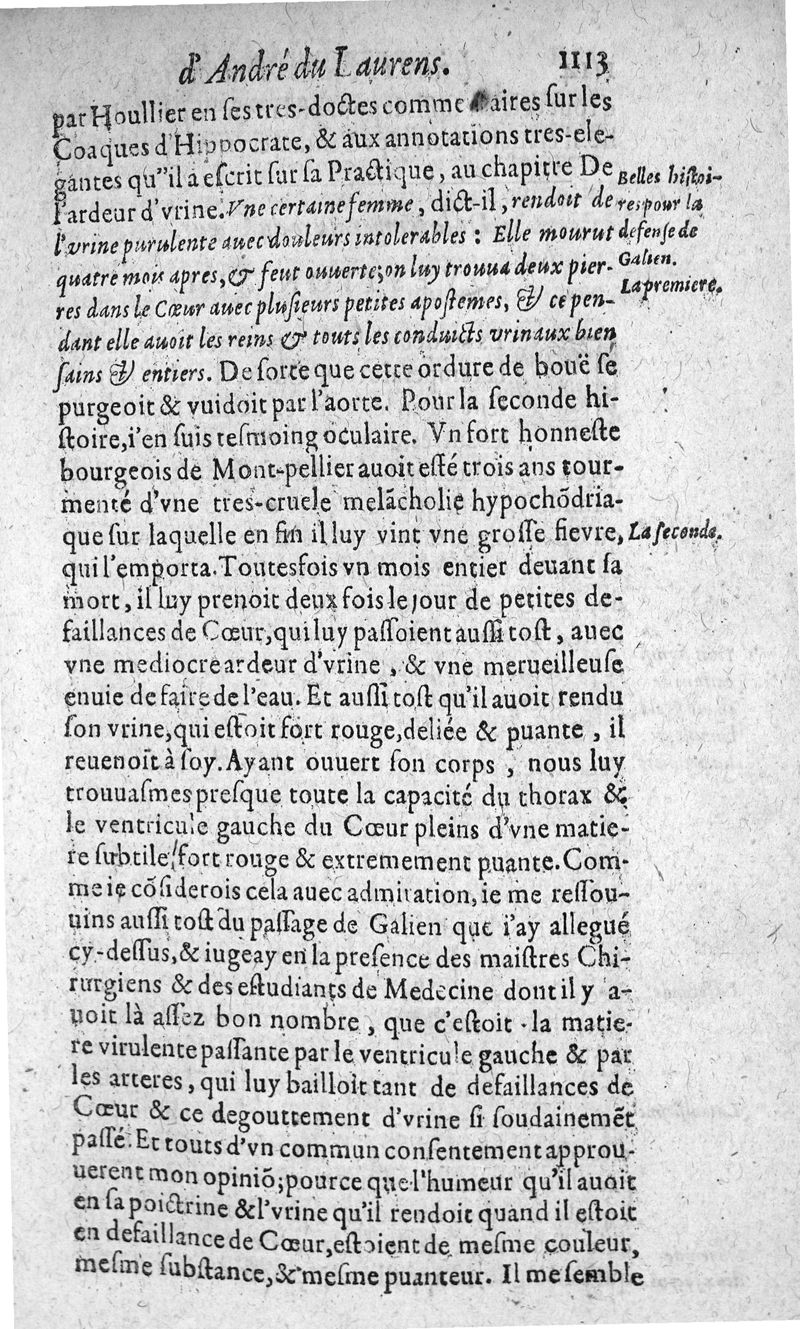 d'André du Laurens. 1113
par Houllier en ses tres-doctes comme aires sur les
Coaques d'Hippocrate, & aux annotations tres-ele-
gantes qu'il a escrit sur sa Practique, au chapitre De
l'ardeur d'vrine. Vne certaine femme, dict-il, rendoit de
l'vrine purulente auec douleurs intolerables : Elle mourut
quatre mois apres, & feut ouuerte; on luy trouua deux pier-
res dans le Cœur auec plusieurs petites apostemes, & ce pen-
dant elle auoit les reins & touts les conduicts vrinaux bien
sains & entiers. De sorte que cette ordure de bouë se
purgeoit & vuidoit par l'aorte. Pour la seconde hi-
stoire, i'en suis tesmoing oculaire. Vn fort honneste
bourgeois de Mont-pellier auoit esté trois ans tour-
menté d'vne tres-cruele melãcholie hypochõdria-
que sur laquelle en fin il luy vint vne grosse fievre,
qui l'emporta. Toutesfois vn mois entier deuant sa
mort, il luy prenoit deux fois le jour de petites de-
faillances de Cœur, qui luy passoient aussi tost, auec
vne mediocre ardeur d'vrine, & vne merueilleuse
enuie de faire de l'eau. Et aussi tost qu'il auoit rendu
son vrine, qui estoit fort rouge, deliée & puante, il
reuenoit à soy. Ayant ouuert son corps, nous luy
trouuasmes presque toute la capacité du thorax &
le ventricule gauche du Cœur pleins d'vne matie-
re subtile, fort rouge & extremement puante. Com-
me ie cõsiderois cela auec admiration, ie me ressou-
uins aussi tost du passage de Galien que i'ay allegué
cy-dessus, & iugeay en la presence des maistres Chi-
rurgiens & des estudiants de Medecine dont il y a-
uoit là assez bon nombre, que c'estoit la matie-
re virulente passante par le ventricule gauche & par
les arteres, qui luy bailloit tant de defaillances de
Cœur & ce degouttement d'vrine si soudainemẽt
passé. Et touts d'vn commun consentement approu-
uerent mon opiniõ; pource que l'humeur qu'il auoit
en sa poictrine & l'vrine qu'il rendoit quand il estoit
en defaillance de Cœur, estoient de mesme couleur,
mesme substance, & mesme puanteur. Il me semble
Belles histoi-
res pour la
defense de
Galien.
La premiere.
La seconde.